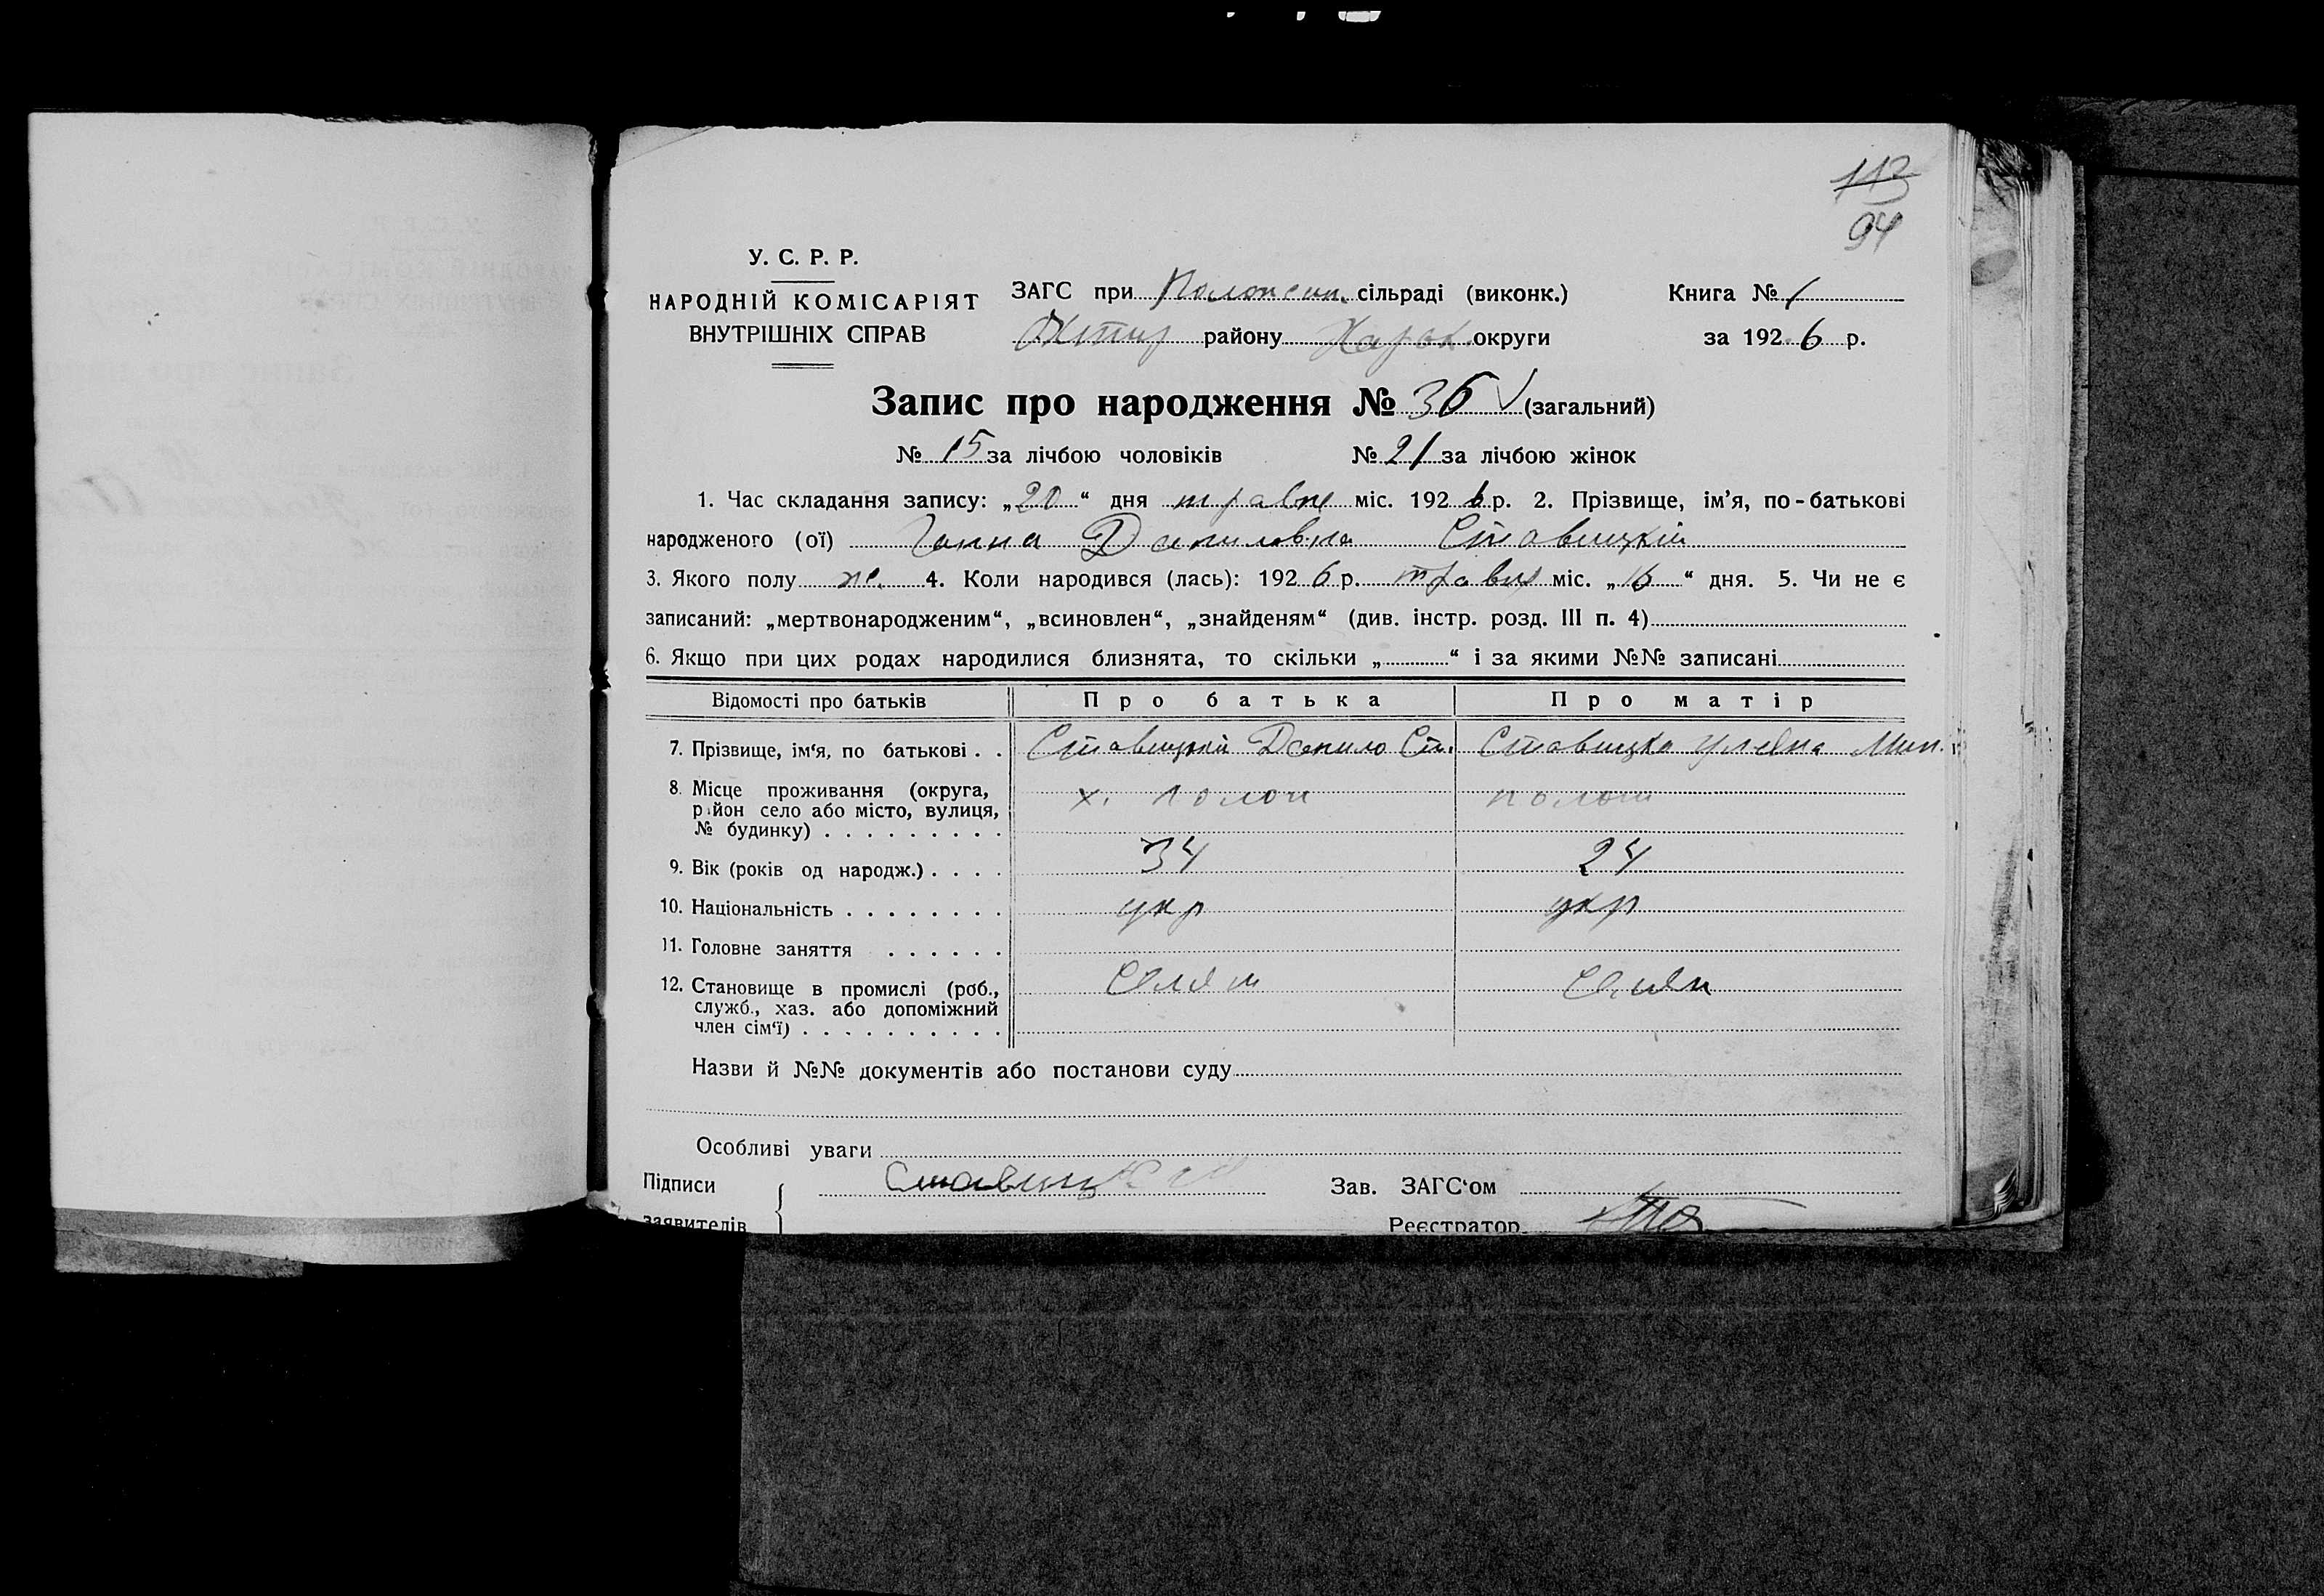 113
94
У. С. Р. Р.
НАРОДНІЙ КОМІСАРІЯТ
ВНУТРІШНІХ СПРАВ
ЗАГС при сільраді (виконк.)
Охтир району Харьк. округи
Книга № 1
за 192 6 р.
Запис про народження № 36 (загальний)
№ 15 за лічбою чоловіків № 21 за лічбою жінок
1. Час складання запису: „20“ дня травня міс. 192 6 р. 2. Прізвище, ім’я, по-батькові
народженого (ої) Ганна Даниловна Ставицкій
3. Якого полу же. 4. Коли народився (лась): 192 6 р. травня міс. „16“ дня. 5. Чи не є
записаний: „мертвонародженим“, „всиновлен“, „знайденям“ (див. інстр. розд. III п. 4)
6. Якщо при цих родах народилися близнята, то скільки „ “ і за якими №№ записані
Відомості про батьків Про батька Про матір
7. Прізвище, ім‘я, по батькові . . Ставицкий Данило Ст. Ставицка Уляна
8. Місце проживання (округа,
район село або місто, вулиця,
№ будинку) . . . . . . . . . х.
9. Вік (років од народж.) . . . . 34 24
10. Національність . . . . . . . . укр укр
11. Головне заняття . . . . . .
12. Становище в промислі (роб.,
служб., хаз. або допоміжний
член сім‘ї) . . . . . . . . . .
Назви й №№ документів або постанови суду
Особливі уваги
Підписи Ставицкий Зав. ЗАГС‘ом
заявителів Реєстратор